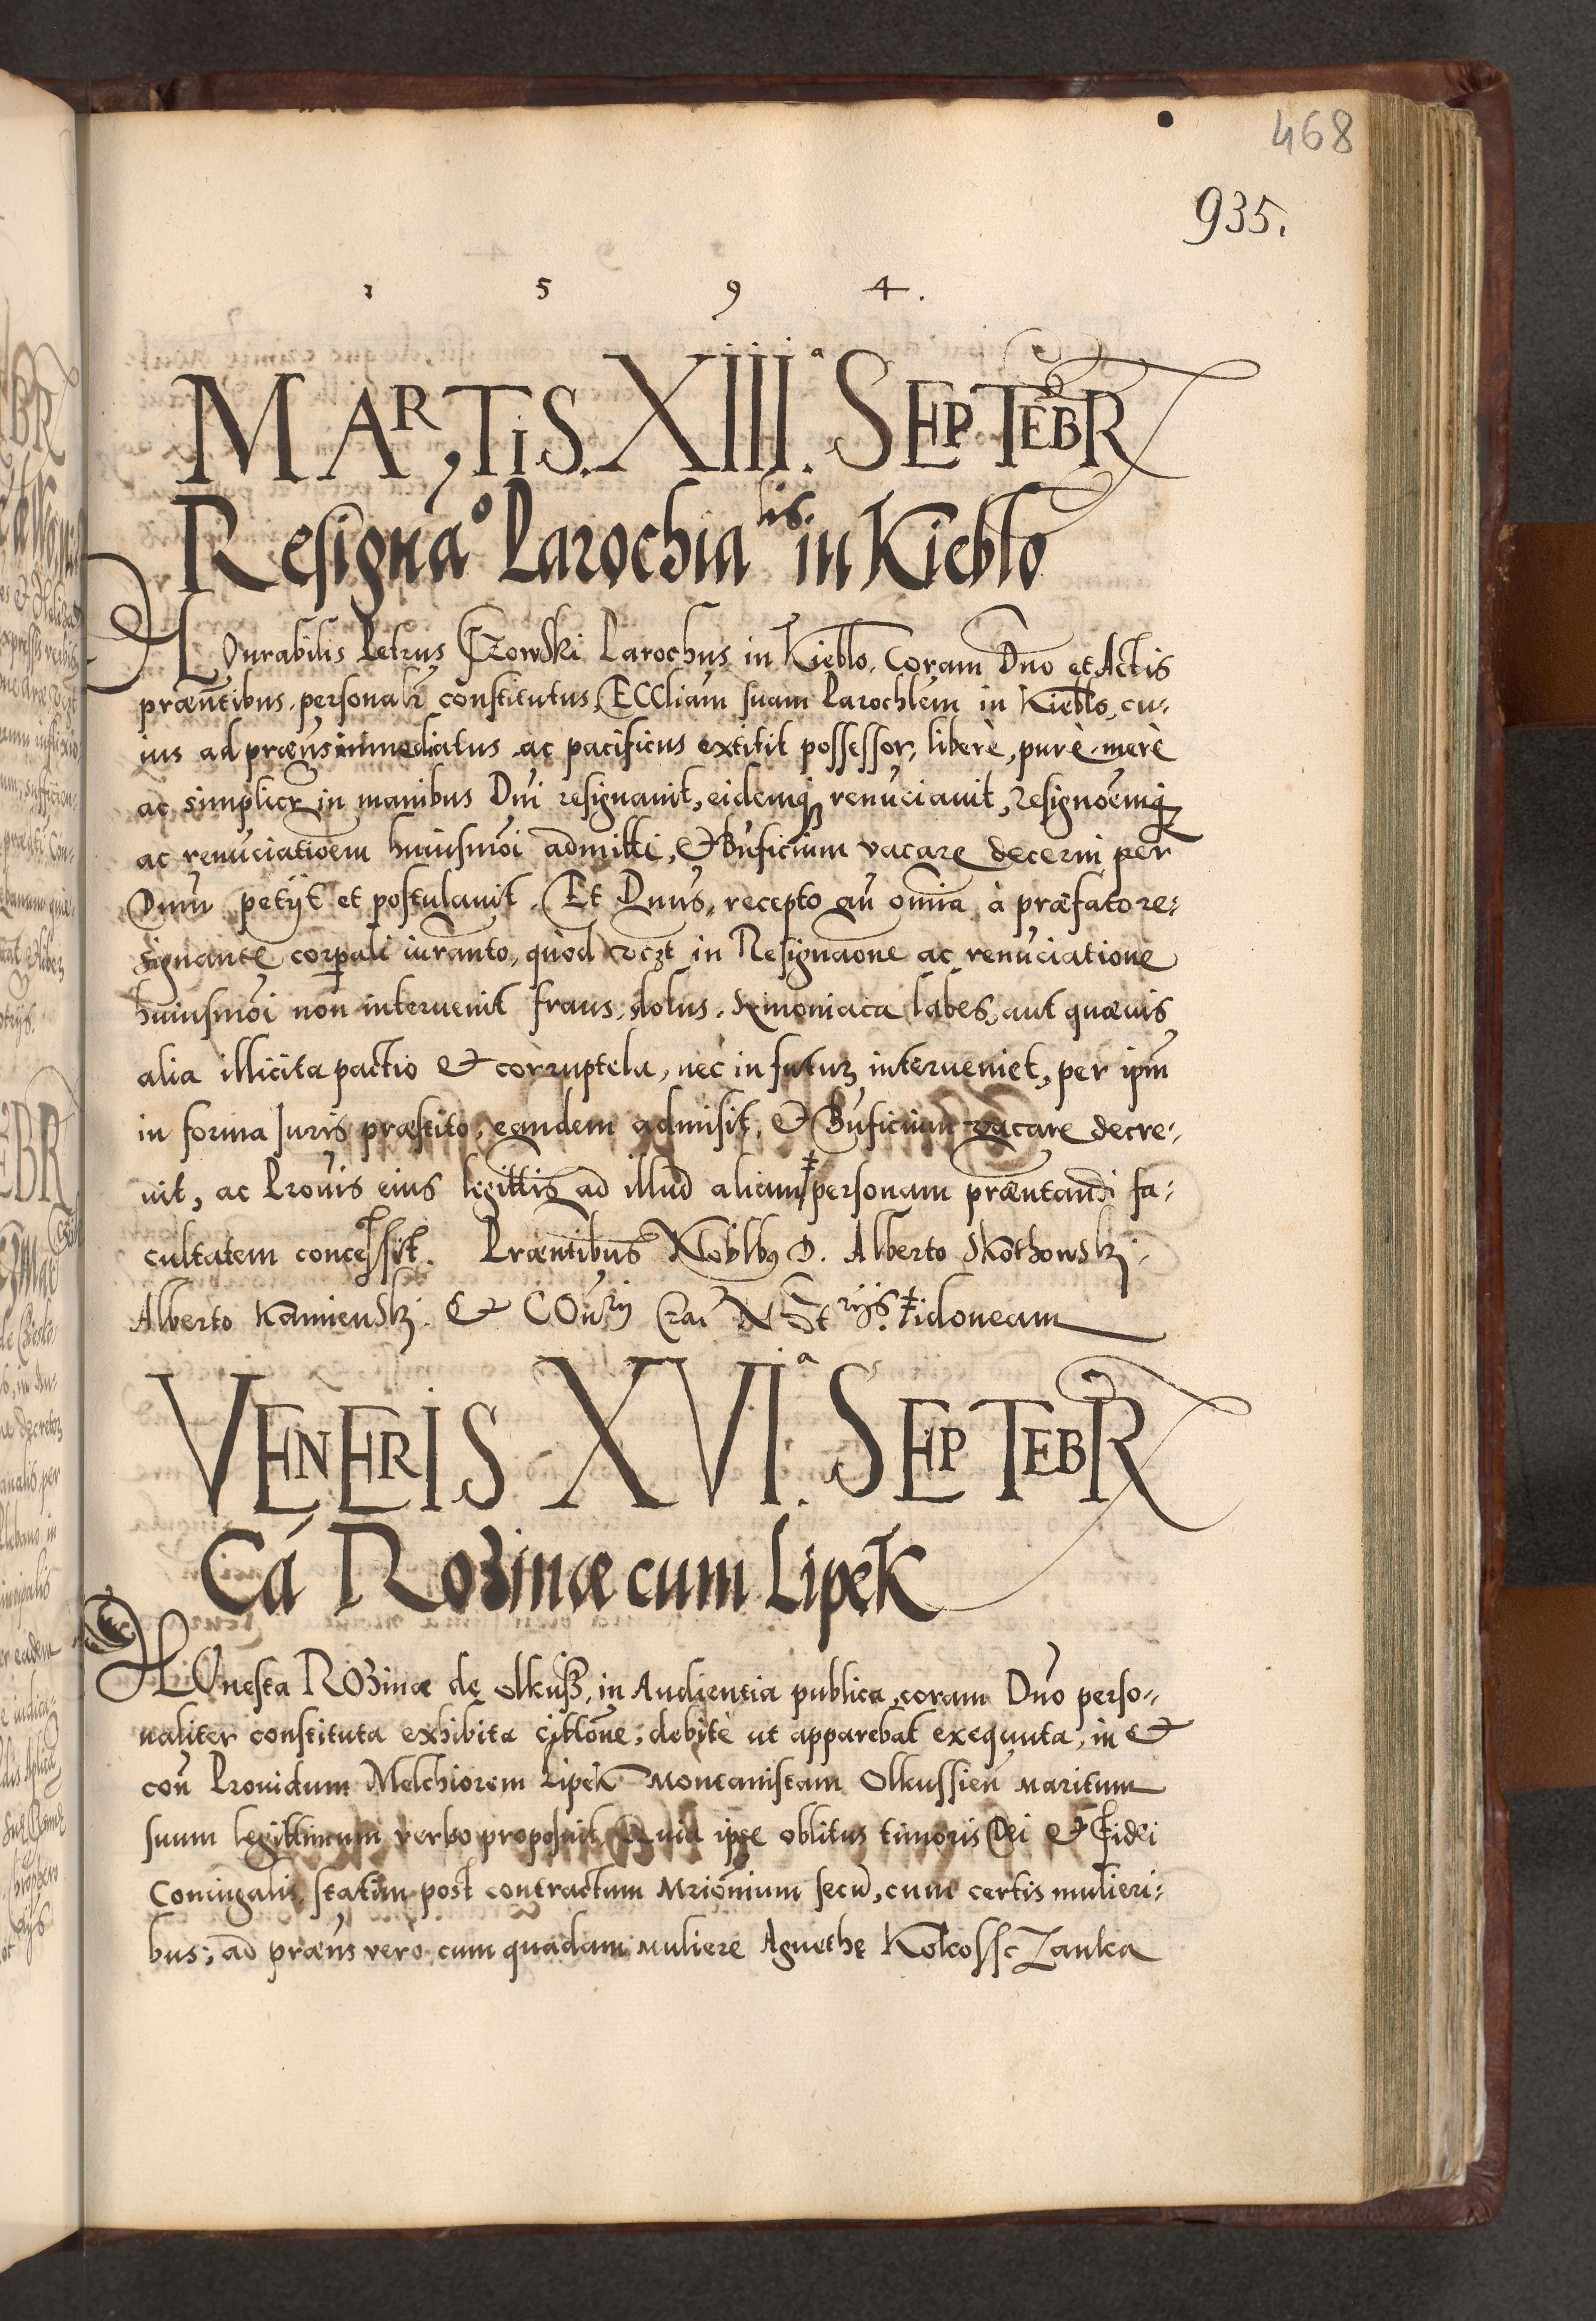 468
935.
1 5 9 4.
MARTIS. XIII.ª SEPTEBR
Resignãº Parochialis. in Kieblo
HOnrabilis Petrus Czowski Parochus in Kieblo. Coram Dno et Actis
præntibus personalr constitutus, ECCliam suam Parochlem in Kieblo, cu-
ius ad præns immediatus ac pacificus extitit possessor, liberè, purè, merè
ac simplicr in manibus Dni resignavit, eidemq renuciavit, Resignoemq
ac renuciatioem huiusmoi admitti, & Bnficium vacare decerni per
Dnm petijt et postulavit. Et Dnus, recepto au omia à præfato re-
signante corpali iuranto, quod in Resignaone ac renuciatione
huiusmoi non intervenit fraus, dolus, Symoniaca labes, aut quævis
alia illicita pactio & corruptela, nec in futuz interveniet, per ipm
in forma Juris præstito, eandem admisit, & Bnficium vacare decre-
uit, ac Provis eius legittis ad illud aliam ‡ personam præntandi fa-
cultatem concessit. Præntibus Noblbg D. Alberto Skothowsky.
Alberto Kamiensky. & COury Cra Notriis. ‡ idoneam
VENERIS XVI.ª SEPTEBR
Cá Rozinæ cum Lipek
HOnesta ROzinæ de Olkusz, in Audientia publica, coram Dno perso-
naliter constituta exhibita cittone, debite ut apparebat exequuta, in &
con Providum Melchiorem Lipek Montanistam Olkussien maritum
suum legittimum verbo proposuit, Quia ipse oblitus timoris Dei & Fidei
Coniugalis, statim post contractum Mrionium secu, cum certis mulieri-
bus; ad præns vero cum quadam muliere Agnethe KokossZanka